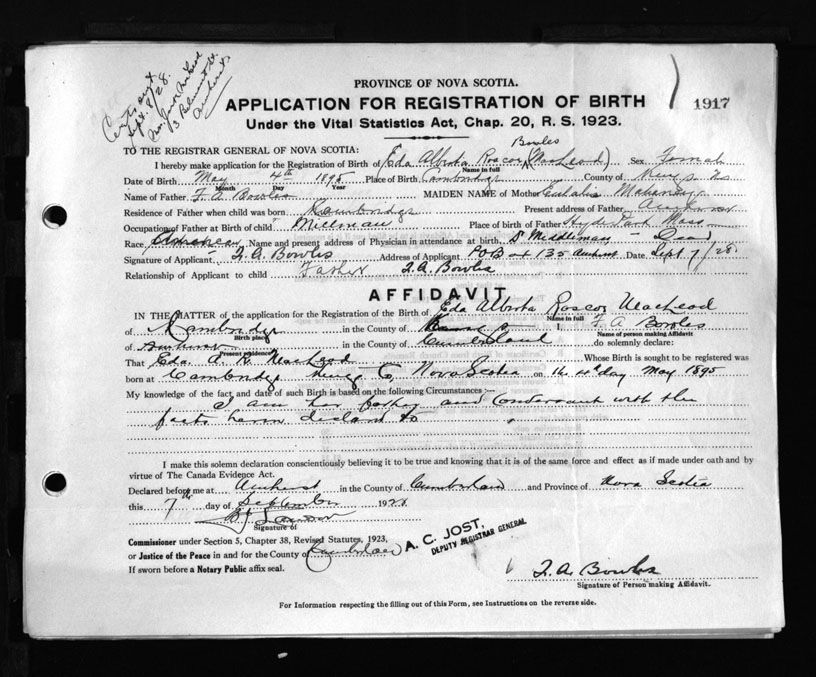 Cert. sent
Sept. 8/28.
Amherst.
PROVINCE OF NOVA SCOTIA.
APPLICATION FOR REGISTRATION OF BIRTH
1917
Under the Vital Statistics Act, Chap. 20, R. S. 1923.
Bowles
TO THE REGISTRAR GENERAL OF NOVA SCOTIA:
I hereby make application for the Registration of Birth of Eda Alberta Roscoe (MacLeod) Sex Female
Name in full
Date of Birth May 4th 1895 Place of Birth Cambridge County of Kings NS
Month Day Year
Name of Father F. A. Bowles MAIDEN NAME of Mother Eulalia
Residence of Father when child was born Cambridge Present address of Father Amherst
Occupation of Father at Birth of child Millman Place of birth of Father Hyde Park Mass
Race Name and present address of Physician in attendance at birth Dr Middlemas Dead
Signature of Applicant F. A. Bowles Address of Applicant POBox 135 Amherst Date Sept 7/28
Relationship of Applicant to child Father F. A. Bowles
AFFIDAVIT
IN THE MATTER of the application for the Registration of the Birth of Eda Alberta Roscoe MacLeod
Name in full
of Cambridge in the County of I, F A Bowles
Birth place Name of person making Affidavit
of Amherst in the County of Cumberland do solemnly declare:
Present residence
That Eda A. R. MacLeod Whose Birth is sought to be registered was
born at Cambridge Kings Co, Nova Scotia on the 4th day May 1895
My knowledge of the fact, and date of such Birth is based on the following Circumstances:—
I am her father and conversant with the
facts herein declared to
I make this solemn declaration conscientiously believing it to be true and knowing that it is of the same force and effect as if made under oath and by
virtue of The Canada Evidence Act.
Declared before me at Amherst in the County of Cumberland and Province of Nova Scotia
this 7th day of September 1928
Signature of
Commissioner under Section 5, Chapter 38, Revised Statutes, 1923,
or Justice of the Peace in and for the County of Cumberland
A. C. JOST,
DEPUTY REGISTRAR GENERAL
If sworn before a Notary Public affix seal.
F. A. Bowles
Signature of Person making Affidavit.
For Information respecting the filling out of this Form, see Instructions on the reverse side.